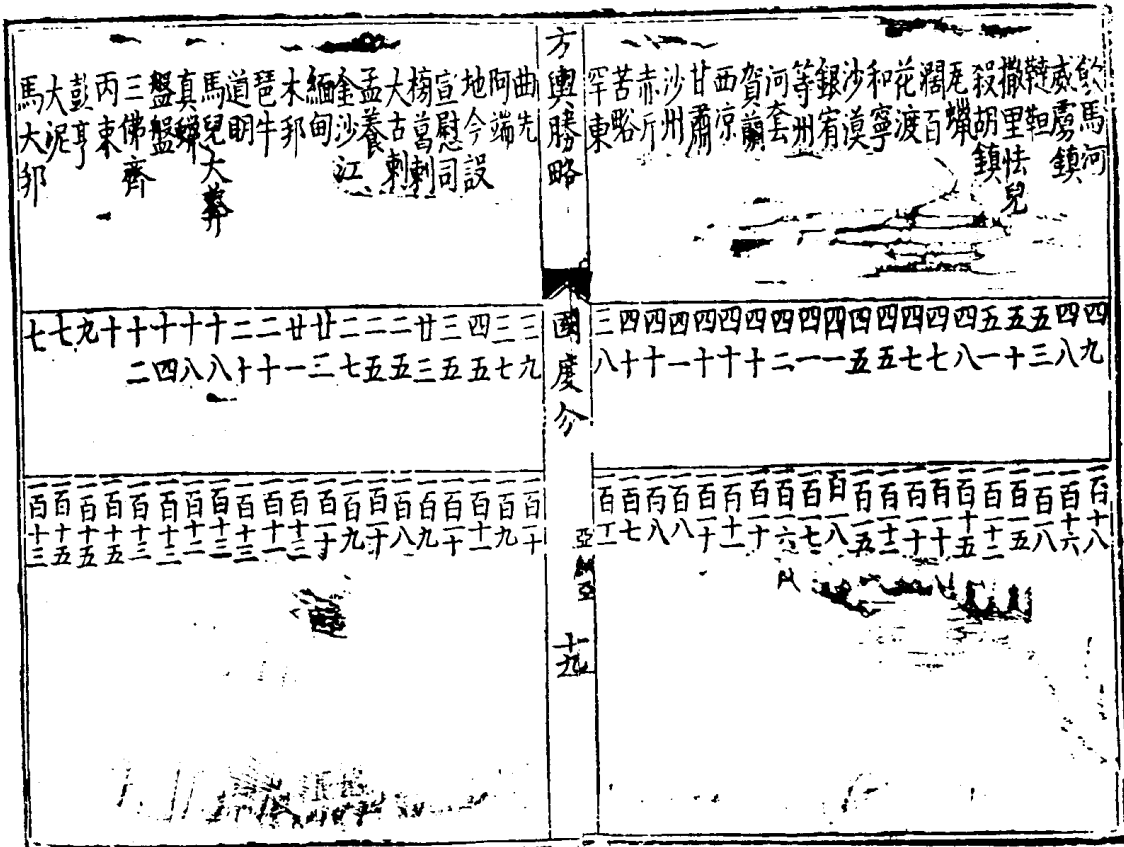 飲馬河
威虜鎮
韃靼
撒里怯兒
殺胡鎮
瓦蠟
濶百
花渡
和寧
沙漠
銀宥
等州
河套
賀蘭
西涼
甘肅
沙州
赤斤
苦峪
罕東
四九
四八
五三
五十
五一
四八
四七
四七
四五
四五
四一
四一
四二
四十
四十
四十
四一
四十
四十
三八
一百十八
一百十六
一百一八
一百一五
一百十二
一百十五
一百一十
一百十二
一百一五
一百一八
一百一七
一百一六
一百一十
一百十一
一百一十
一百八
一百八
一百七
方輿勝略
國度分
亞細亞
十九
曲先
阿端
地今設
宣慰司
榜葛剌
大古剌
孟養
金沙江
緬甸
木邦
琶牛
道明
馬兒大葬
真蠟
盤盤
三佛齊
丙東
彭亨
大泥
馬大邦
三九
三七
四五
三五
廿三
二五
二五
二七
廿三
廿一
二十
二十
十八
十八
十四
十二
十
九
七
七
一百一十
一百九
一百十一
一百一十
一百九
一百八
一百一十
一百九
一百一十
一百十三
一百十一
一百十三
一百十三
一百十二
一百十三
一百十三
一百十五
一百十五
一百十五
一百十三